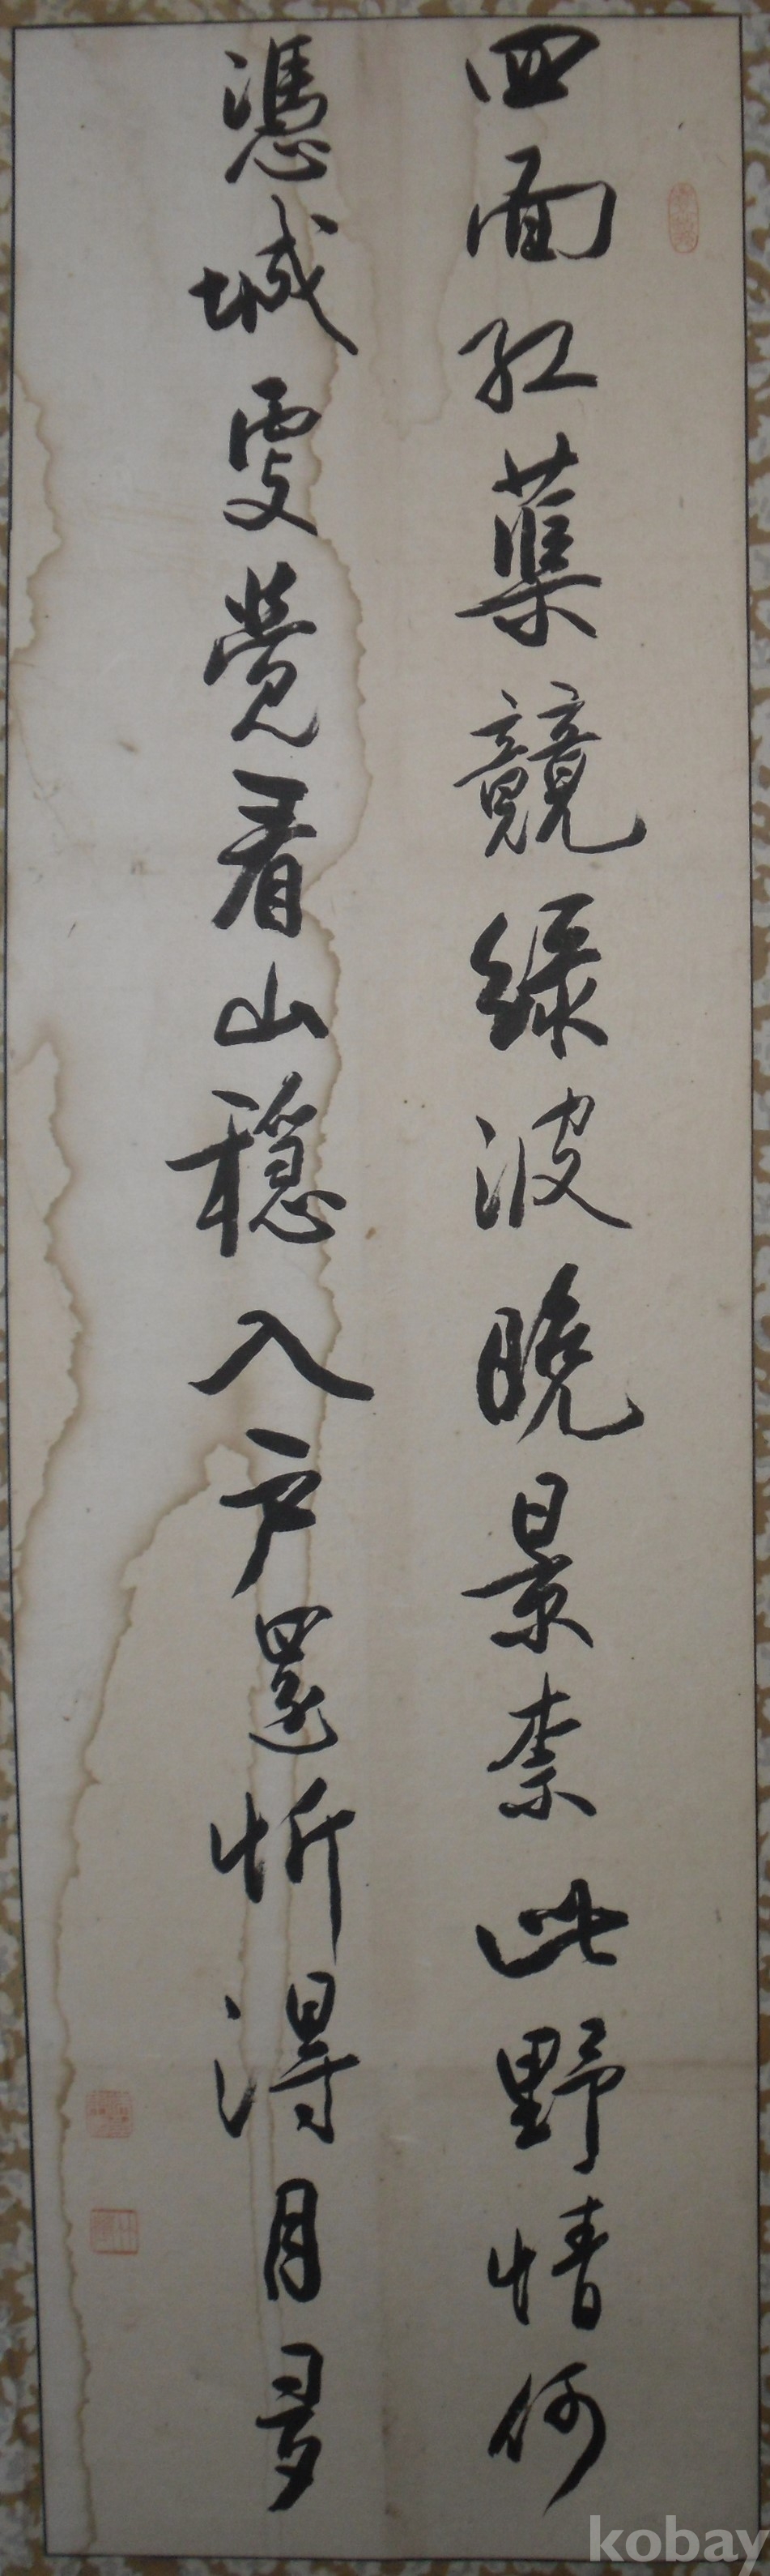 四面紅葉競綠波晚景柰此野情何
憑城更覺看山穩入戶還忻得月多
kobay